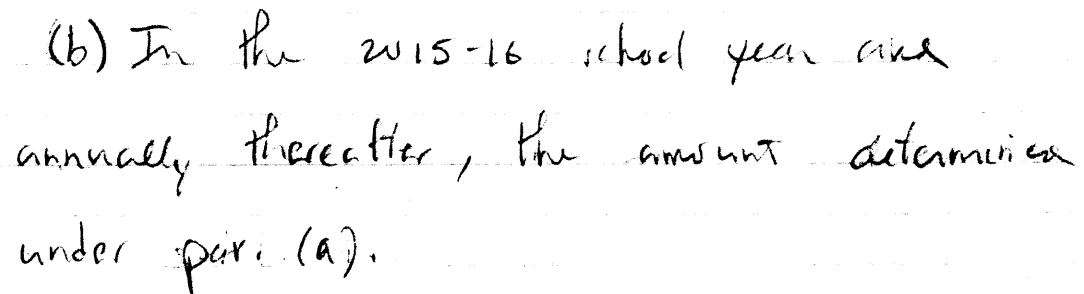 (b) In the 2015-16 school year and
annually thereafter, the amount determined
under par. (a).